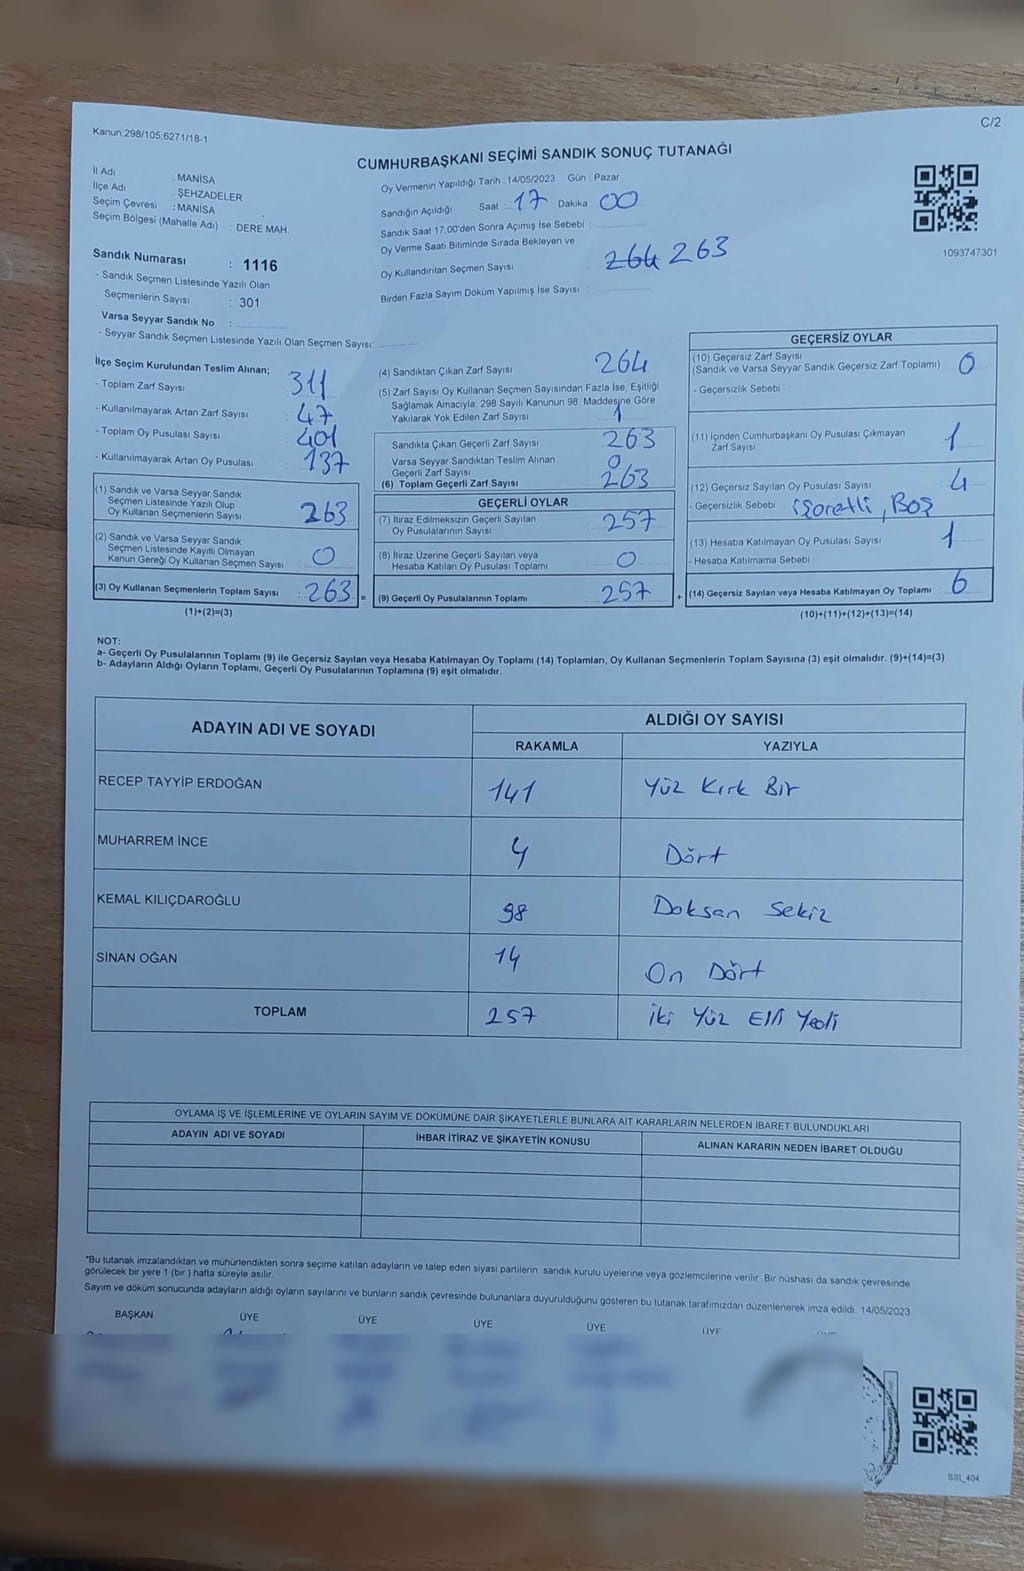 Kanun:298/105,6271/18-1
C/2
CUMHURBAŞKANI SEÇİMİ SANDIK SONUÇ TUTANAĞI
İl Adı : MANİSA
İlçe Adı : ŞEHZADELER
Seçim Çevresi : MANİSA
Seçim Bölgesi (Mahalle Adı) : DERE MAH.
Sandık Numarası : 1116
- Sandık Seçmen Listesinde Yazılı Olan
Seçmenlerin Sayısı : 301
Varsa Seyyar Sandık No :
- Seyyar Sandık Seçmen Listesinde Yazılı Olan Seçmen Sayısı:
Oy Vermenin Yapıldığı Tarih : 14/05/2023 Gün : Pazar
Sandığın Açıldığı Saat : 17 Dakika 00
Sandık Saat 17:00'den Sonra Açımış İse Sebebi :
Oy Verme Saati Bitiminde Sırada Bekleyen ve
Oy Kullandırılan Seçmen Sayısı : 264 263
Birden Fazla Sayım Döküm Yapılmış İse Sayısı :
1093747301
İlçe Seçim Kurulundan Teslim Alınan;
- Toplam Zarf Sayısı : 311
- Kullanılmayarak Artan Zarf Sayısı : 47
- Toplam Oy Pusulası Sayısı : 401
- Kullanılmayarak Artan Oy Pusulası : 137
(1) Sandık ve Varsa Seyyar Sandık
Seçmen Listesinde Yazılı Olup
Oy Kullanan Seçmenlerin Sayısı : 263
(2) Sandık ve Varsa Seyyar Sandık
Seçmen Listesinde Kayıtlı Olmayan
Kanun Gereği Oy Kullanan Seçmen Sayısı : 0
(3) Oy Kullanan Seçmenlerin Toplam Sayısı : 263 =
(1)+(2)=(3)
(4) Sandıktan Çıkan Zarf Sayısı : 264
(5) Zarf Sayısı Oy Kullanan Seçmen Sayısından Fazla İse, Eşitliği
Sağlamak Amacıyla; 298 Sayılı Kanunun 98. Maddesine Göre
Yakılarak Yok Edilen Zarf Sayısı : 1
Sandıkta Çıkan Geçerli Zarf Sayısı : 263
Varsa Seyyar Sandıktan Teslim Alınan
Geçerli Zarf Sayısı : 0
(6) Toplam Geçerli Zarf Sayısı : 263
GEÇERLİ OYLAR
(7) İtiraz Edilmeksizin Geçerli Sayılan
Oy Pusulalarının Sayısı : 257
(8) İtiraz Üzerine Geçerli Sayılan veya
Hesaba Katılan Oy Pusulası Toplamı : 0
(9) Geçerli Oy Pusulalarının Toplamı : 257 +
GEÇERSİZ OYLAR
(10) Geçersiz Zarf Sayısı
(Sandık ve Varsa Seyyar Sandık Geçersiz Zarf Toplamı) : 0
- Geçersizlik Sebebi :
(11) İçinden Cumhurbaşkanı Oy Pusulası Çıkmayan
Zarf Sayısı : 1
(12) Geçersiz Sayılan Oy Pusulası Sayısı : 4
- Geçersizlik Sebebi : işaretli, Boş
(13) Hesaba Katılmayan Oy Pusulası Sayısı : 1
- Hesaba Katılmama Sebebi :
(14) Geçersiz Sayılan veya Hesaba Katılmayan Oy Toplamı : 6
(10)+(11)+(12)+(13)=(14)
NOT:
a- Geçerli Oy Pusulalarının Toplamı (9) ile Geçersiz Sayılan veya Hesaba Katılmayan Oy Toplamı (14) Toplamları, Oy Kullanan Seçmenlerin Toplam Sayısına (3) eşit olmalıdır. (9)+(14)=(3)
b- Adayların Aldığı Oyların Toplamı, Geçerli Oy Pusulalarının Toplamına (9) eşit olmalıdır.
ADAYIN ADI VE SOYADI ALDIĞI OY SAYISI
RAKAMLA YAZIYLA
RECEP TAYYİP ERDOĞAN 141 Yüz Kırk Bir
MUHARREM İNCE 4 Dört
KEMAL KILIÇDAROĞLU 98 Doksan Sekiz
SİNAN OĞAN 14 On Dört
TOPLAM 257 iki Yüz Elli Yedi
OYLAMA İŞ VE İŞLEMLERİNE VE OYLARIN SAYIM VE DÖKÜMÜNE DAİR ŞİKAYETLERLE BUNLARA AİT KARARLARIN NELERDEN İBARET BULUNDUKLARI
ADAYIN ADI VE SOYADI İHBAR İTİRAZ VE ŞİKAYETİN KONUSU ALINAN KARARIN NEDEN İBARET OLDUĞU
*Bu tutanak imzalandıktan ve mühürlendikten sonra seçime katılan adayların ve talep eden siyasi partilerin sandık kurulu üyelerine veya gözlemcilerine verilir. Bir nüshası da sandık çevresinde
görülecek bir yere 1 (bir ) hafta süreyle asılır.
Sayım ve döküm sonucunda adayların aldığı oyların sayılarını ve bunların sandık çevresinde bulunanlara duyurulduğunu gösteren bu tutanak tarafımızdan düzenlenerek imza edildi. 14/05/2023
BAŞKAN ÜYE ÜYE ÜYE ÜYE ÜYE
SSI_404